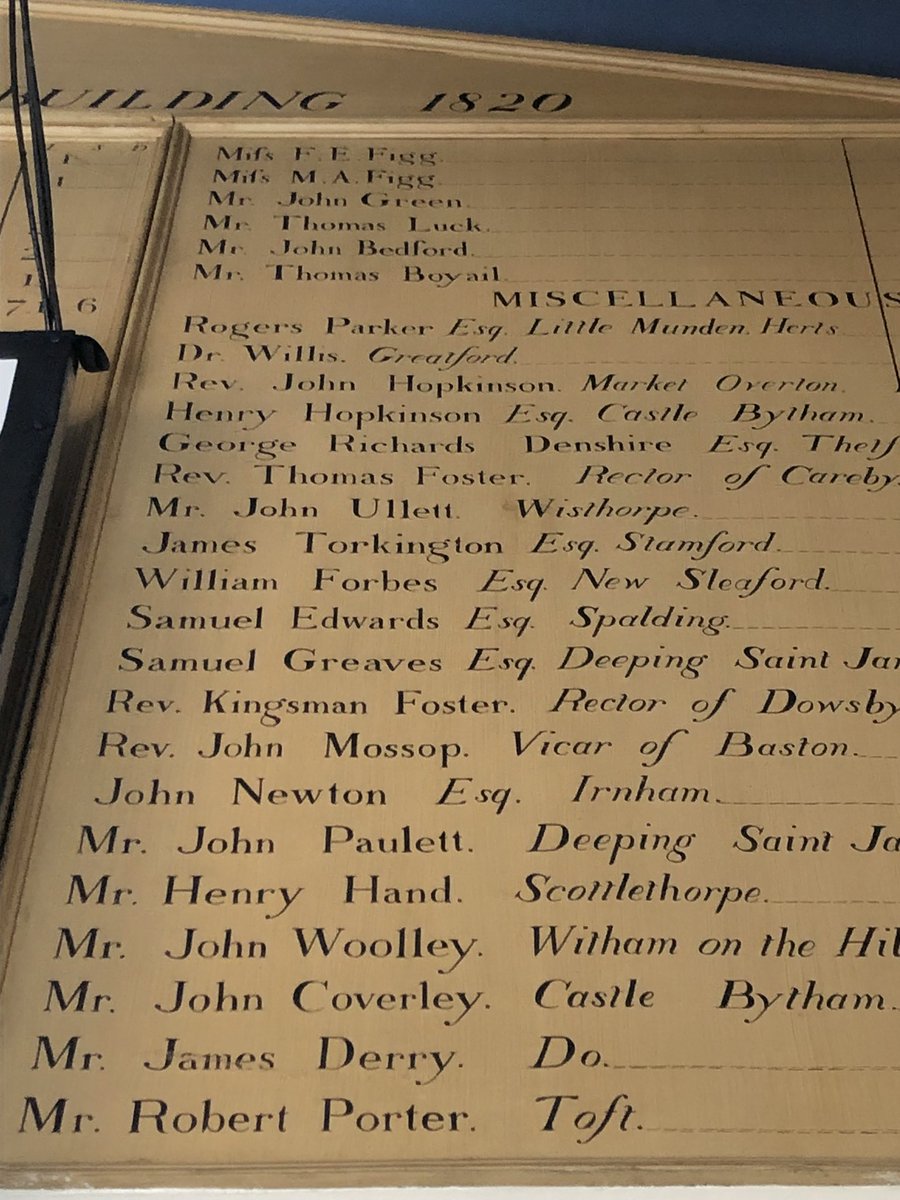 BUILDING 1820
Miſs F. E. Figg.
Miſs M. A. Figg.
Mr. John Green.
Mr. Thomas Luck.
Mr. John Bedford.
Mr. Thomas Boyail.
7 1 6
MISCELLANEOUS
Rogers Parker Esq. Little Munden, Herts
Dr. Willis. Greatford.
Rev. John Hopkinson. Market Overton.
Henry Hopkinson Esq. Castle Bytham.
George Richards Denshire Esq. Thetf
Rev. Thomas Foster. Rector of Careby.
Mr. John Ullett. Wisthorpe.
James Torkington Esq. Stamford.
William Forbes Esq. New Sleaford.
Samuel Edwards Esq. Spalding.
Samuel Greaves Esq. Deeping Saint Jar
Rev. Kingsman Foster. Rector of Dowsby
Rev. John Mossop. Vicar of Baston.
John Newton Esq. Irnham.
Mr. John Paulett. Deeping Saint Ja
Mr. Henry Hand. Scottlethorpe.
Mr. John Woolley. Witham on the Hil
Mr. John Coverley. Castle Bytham.
Mr. James Derry. Do.
Mr. Robert Porter. Toft.